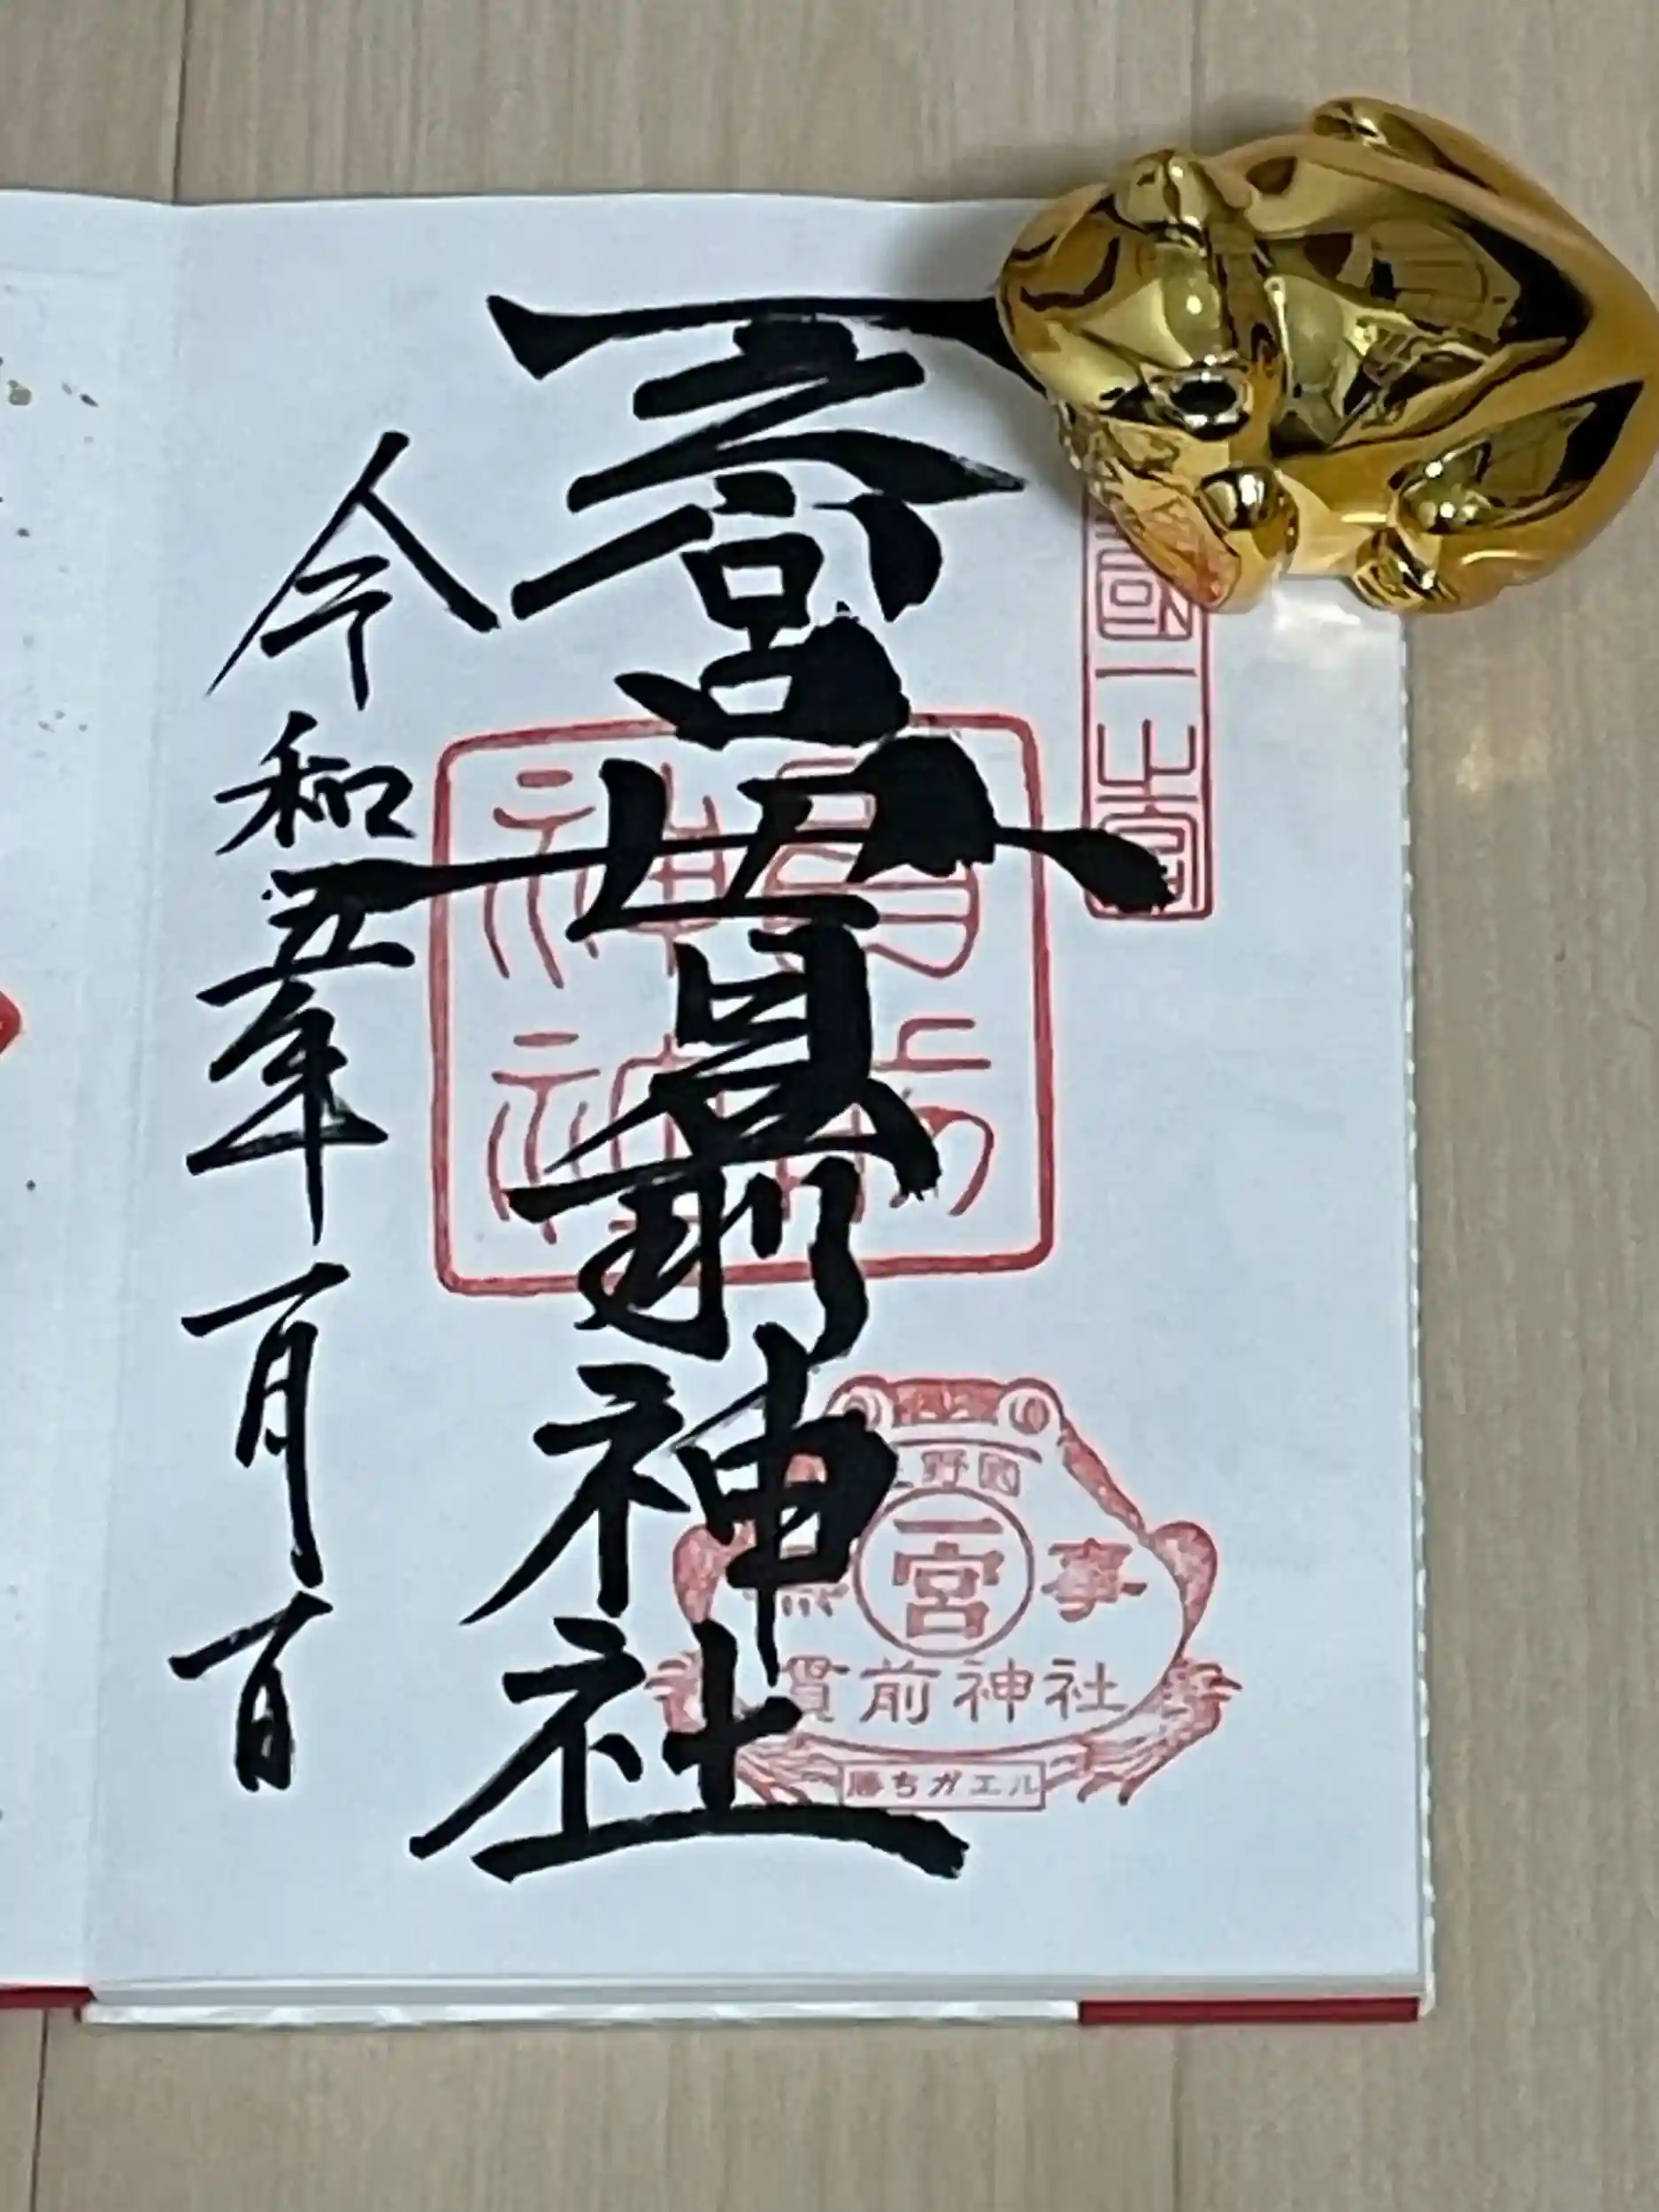 國一之宮
一之宮貫前神社
令和五年一月一日
野國
一宮
無事
貫前神社
勝ちガエル